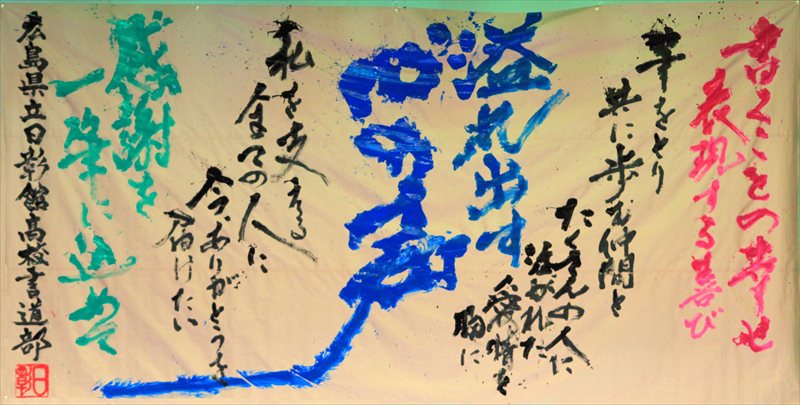 書くことの幸せ
表現する喜び
筆をとり
共に歩む仲間と
たくさんの人に
注がれた
愛情を
胸に
溢れ出す
心の声
私を支える
全ての人に
今、ありがとうを
届けたい
感謝を
一筆に込めて
広島県立日彰館高校書道部
日彰